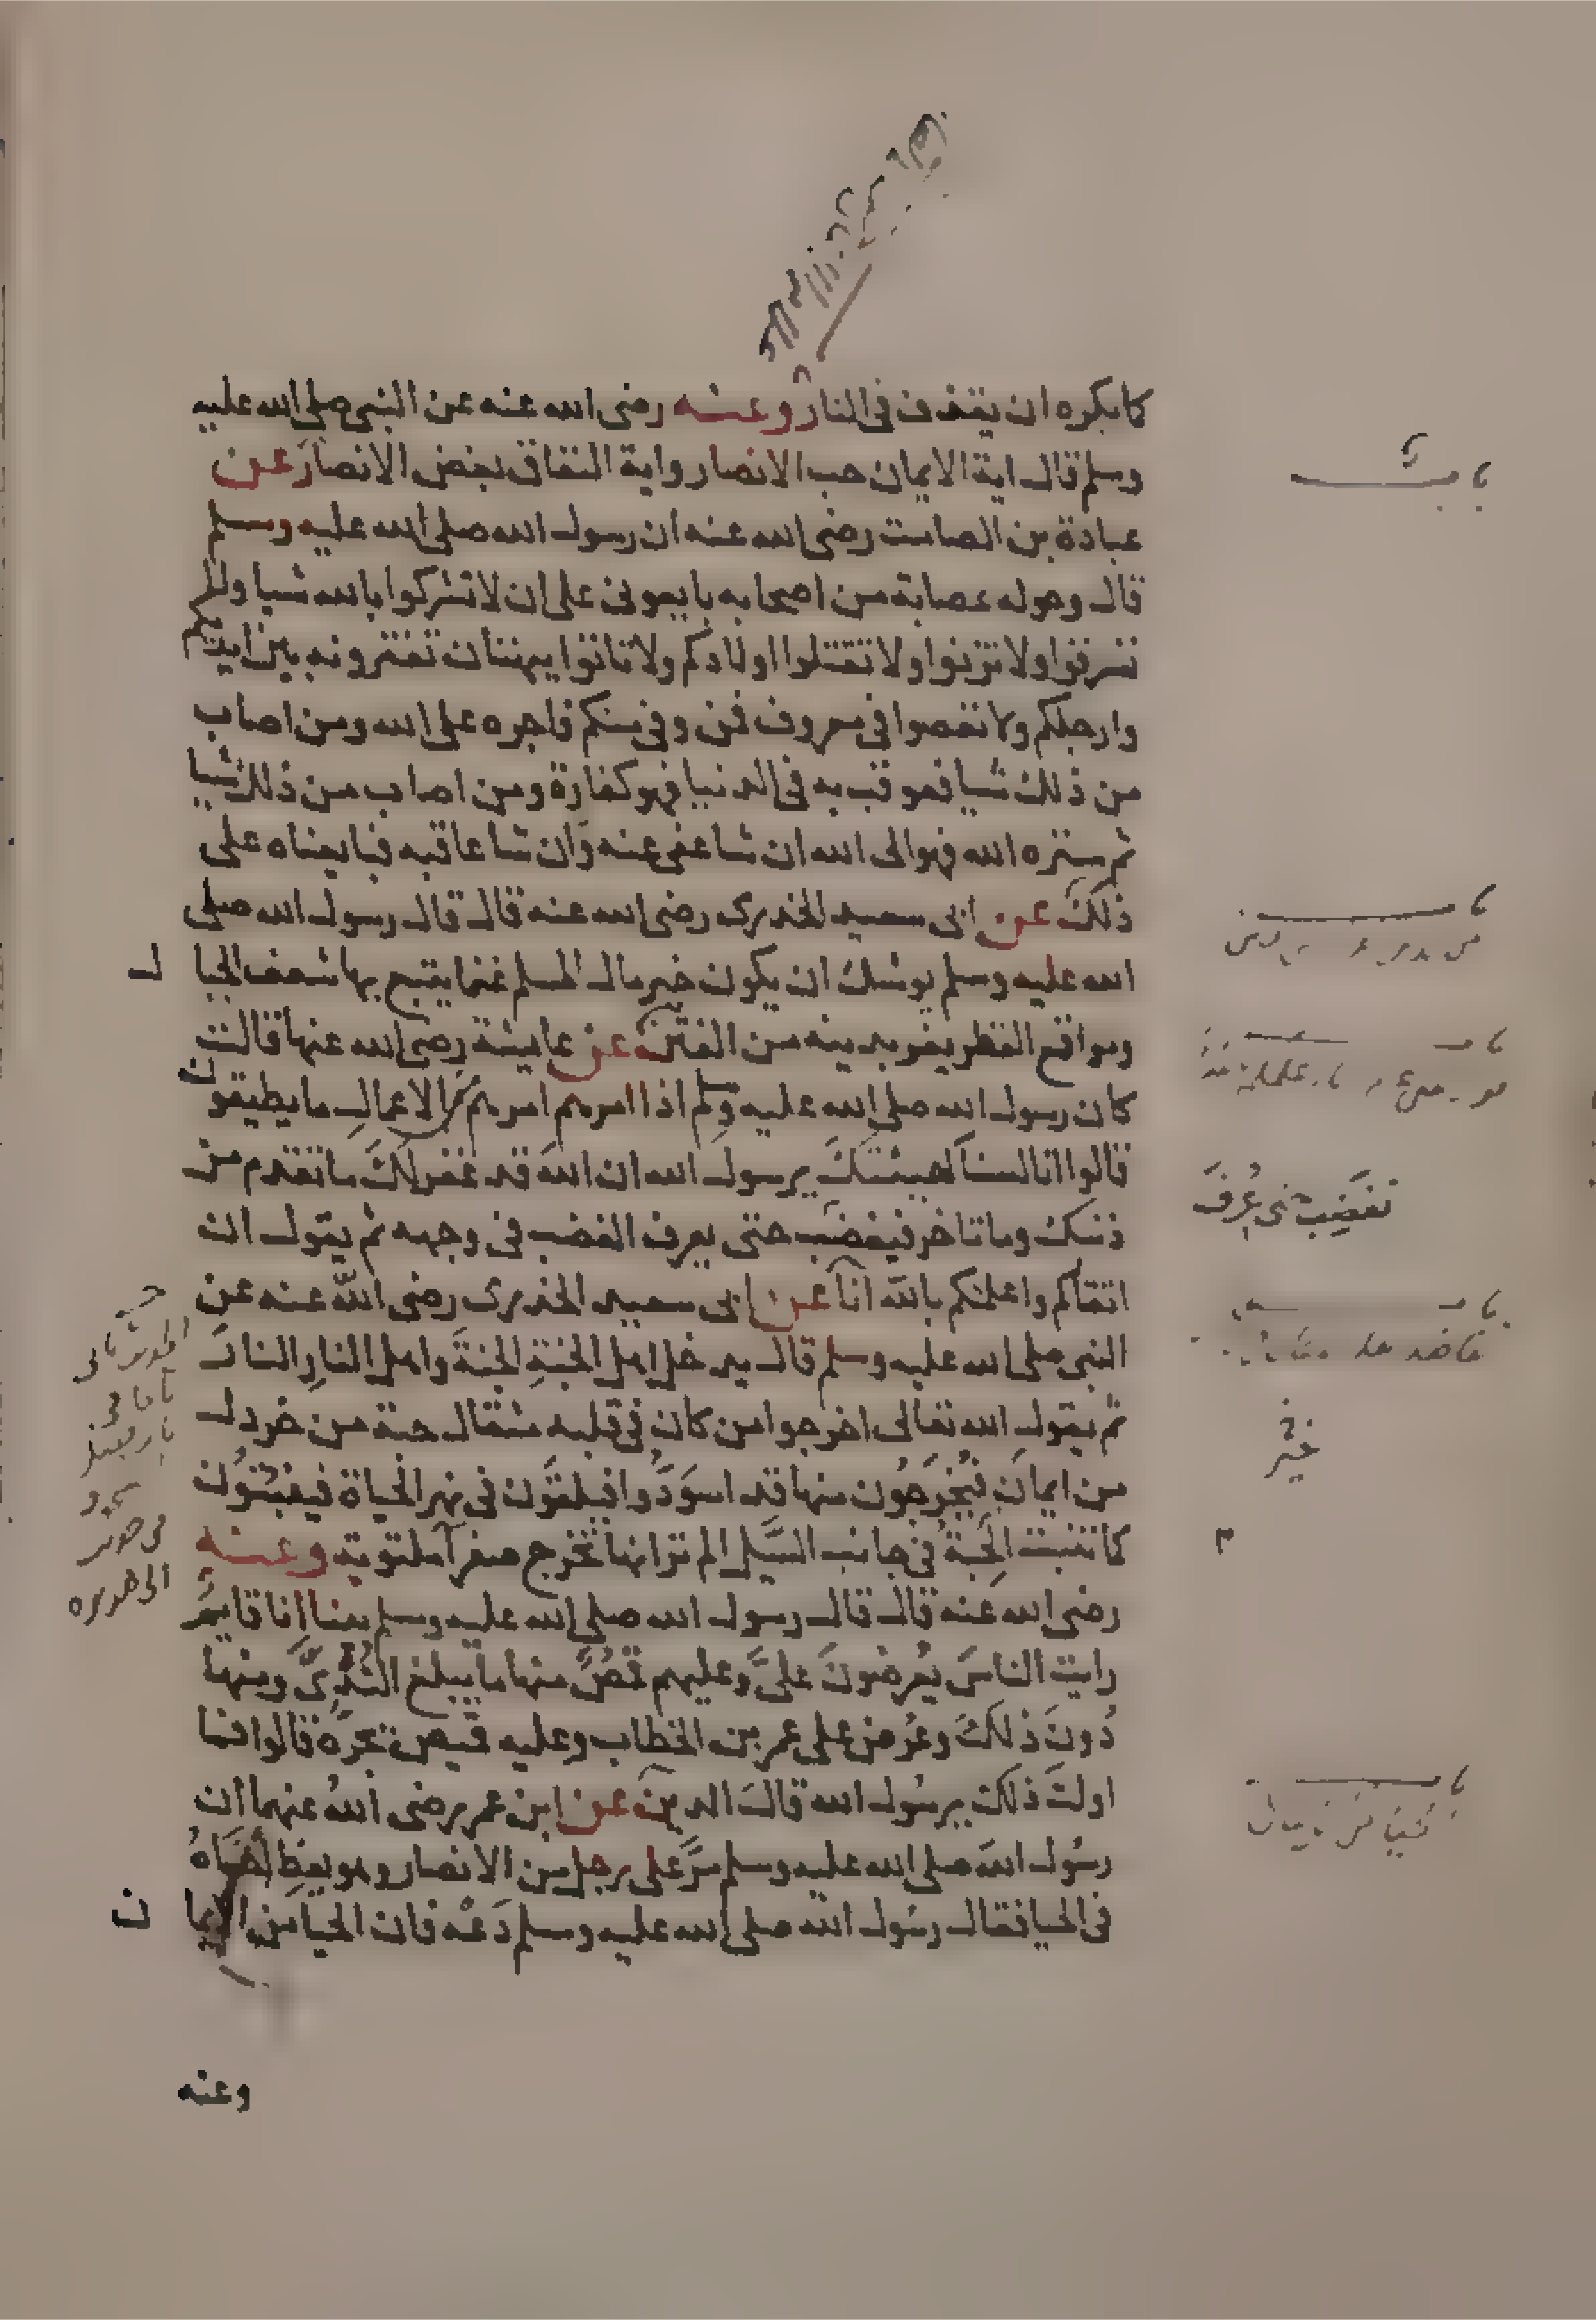 كما يكره ان يقذف في النار وعنه رضى الله عنه عن النبي صلى الله عليه
وسلم قال اية الايمان حب الانصار واية النفاق بغض الانصار عن
عبادة بن الصامت رضى الله عنه ان رسول الله صلى الله عليه وسلم
قال وحوله عصابة من اصحابه بايعونى على ان لا تشركوا بالله شيا ولا
تسرقوا ولا تزنوا ولا تقتلوا اولادكم ولا تاتوا ببهتان تفترونه بين ايديكم
وارجلكم ولا تعصوا في معروف فمن وفي منكم فاجره على الله ومن اصاب
من ذلك شيا فعوقب به في الدنيا فهو كفارة ومن اصاب من ذلك شيا
ثم ستره الله فهو الى الله ان شا عفى عنه وان شا عاقبه فبايعناه على
ذلك عن ابى سعيد الخدرى رضى الله عنه قال قال رسول الله صلى
الله عليه وسلم يوشك ان يكون خير مال المسلم غنما يتبع بها شعف الجبال
ومواقع القطر يفر بدينه من الفتن عن عايشة رضى الله عنها قالت
كان رسول الله صلى الله عليه وسلم اذا امرهم امرهم من الاعمال ما يطيقون
قالوا انا لسنا كهيئتك يرسول الله ان الله قد غفر لك ما تقدم من
ذنبك وما تاخر فيغضب حتى يعرف الغضب في وجهه ثم يقول ان
اتقاكم واعلمكم بالله انا عن ابى سعيد الخدرى رضى الله عنه عن
النبي صلى الله عليه وسلم قال يدخل اهل الجنة الجنة واهل النار النار
ثم يقول الله تعالى اخرجوا من كان في قلبه مثقال حبة من خردل
من ايمان فيخرجون منها قد اسودوا فيلقون في نهر الحياة فينبتون
كما تنبت الحبة في جانب السيل الم تر انها تخرج صفرا ملتوية وعنه
رضى الله عنه قال قال رسول الله صلى الله عليه وسلم بينا انا قايم
رايت الناس يعرضون على وعليهم قمص منها ما يبلغ الثدى ومنها
دون ذلك وعرض على عمر بن الخطاب وعليه قميص يجره قالوا فما
اولت ذلك يرسول الله قال الدين عن ابن عمر رضى الله عنهما ان
رسول الله صلى الله عليه وسلم مر على رجل من الانصار وهو يعظ اخاه
في الحيا فقال رسول الله صلى الله عليه وسلم دعه فان الحيا من الايمان
وعنه
باب
باب
باب
باب
باب